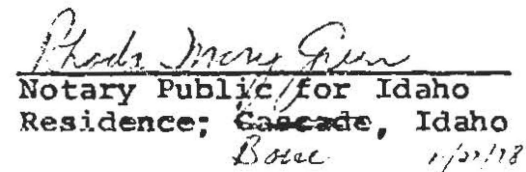 Rhoda Mary Green
Notary Public for Idaho
Residence; Cascade, Idaho
Boise